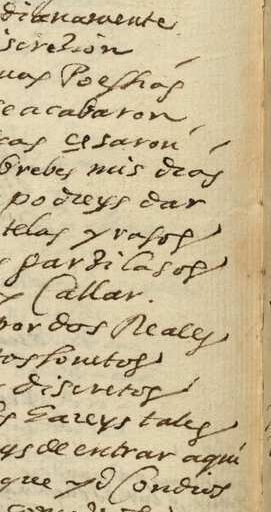 dianamente
iscreSion
uas Poeshas
se acabaron
cas çesaron
brebes mis dias
podreys dar
telas y rasos
s garzilasos
y Callar.
por dos Reales
tos sonetos
s discretos
s hareys tales
ys de entrar aqui
que yd Con dios